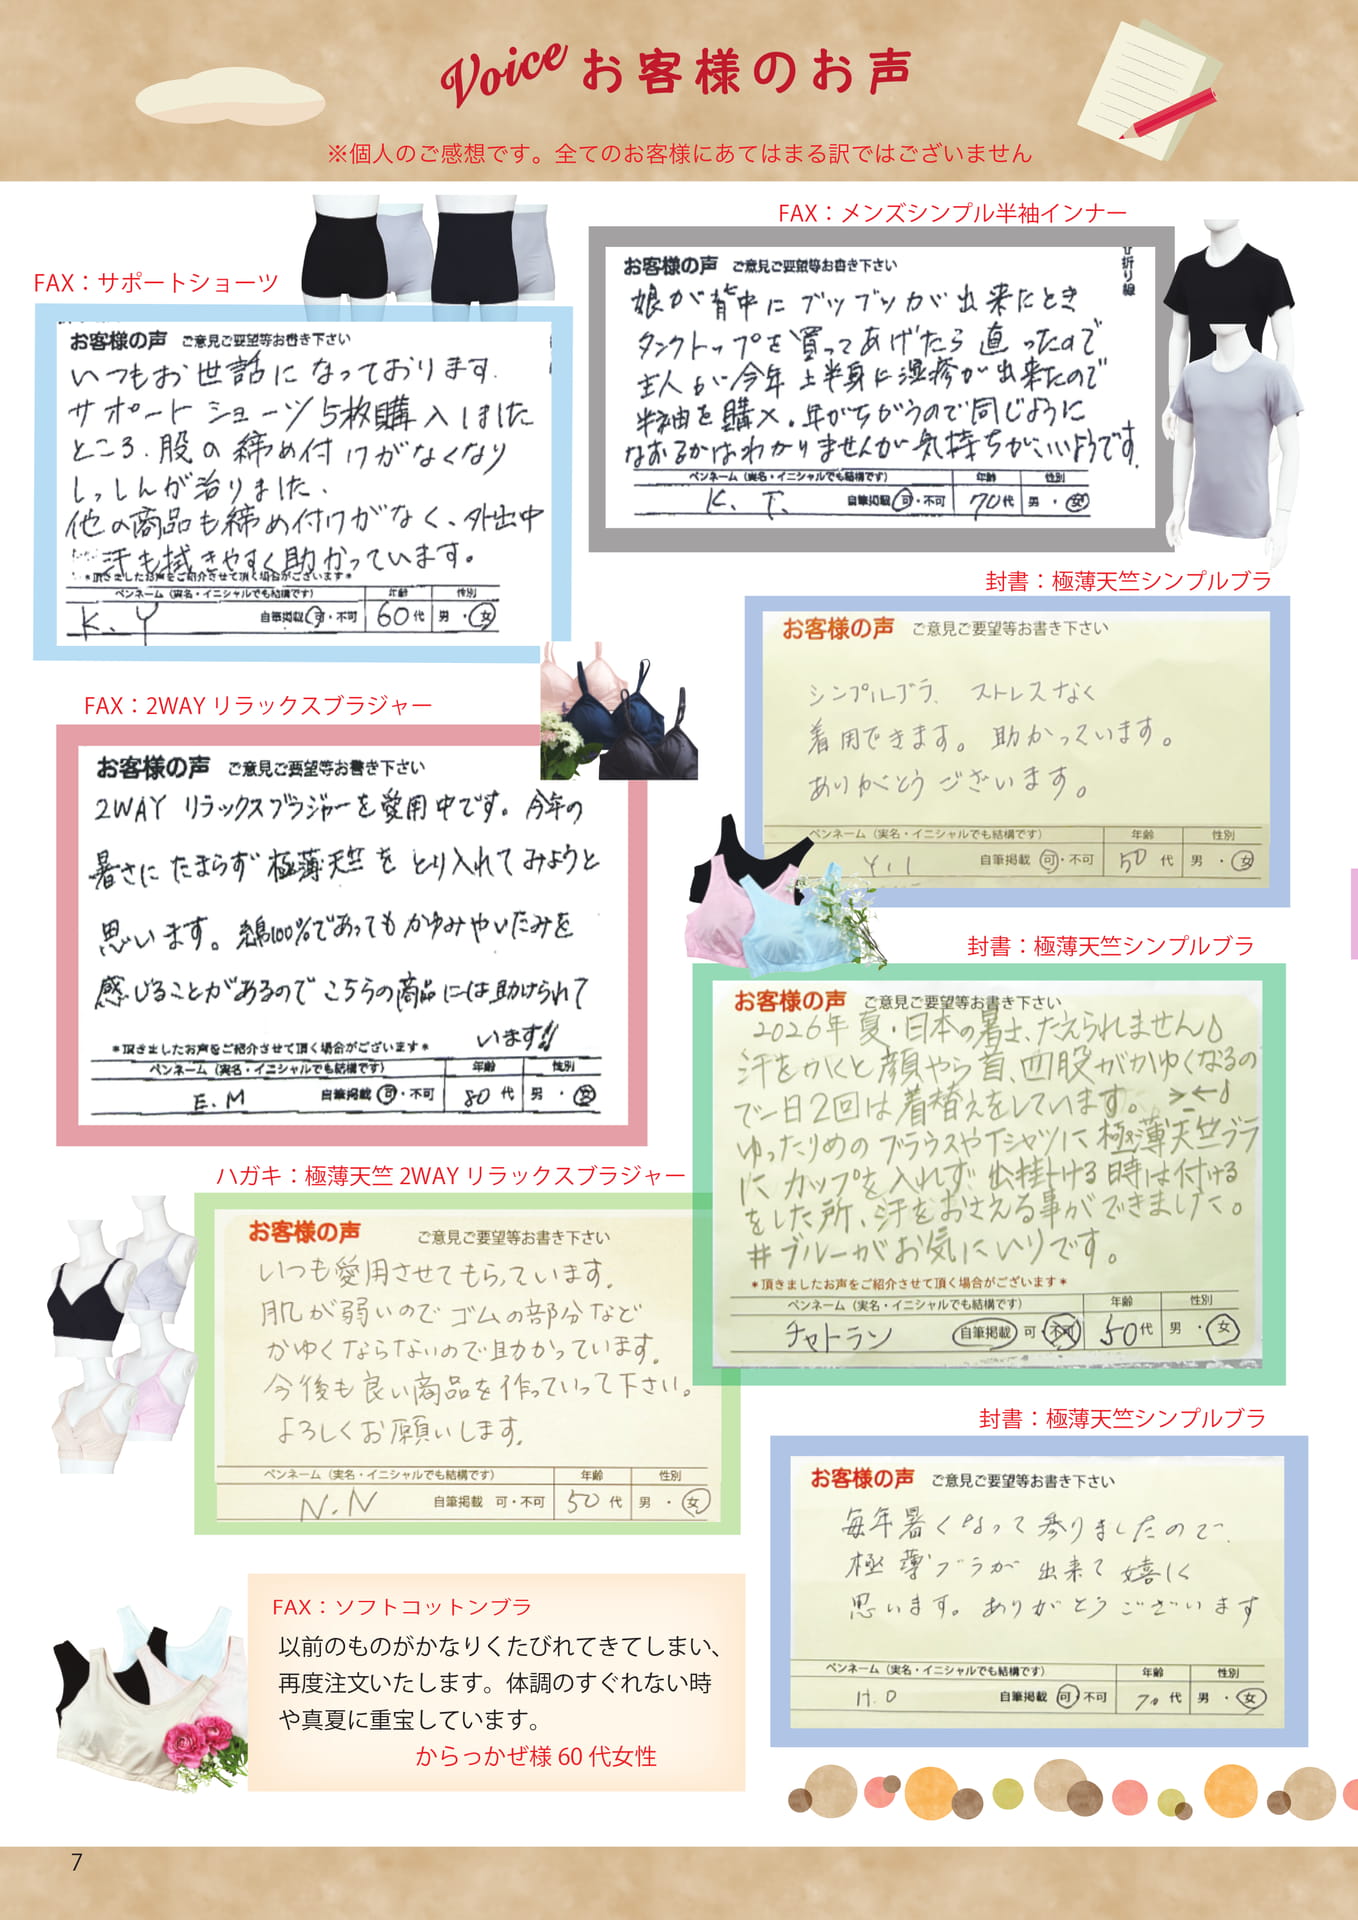 Voice お客様のお声
※個人のご感想です。全てのお客様にあてはまる訳ではございません
FAX：サポートショーツ
お客様の声 ご意見ご要望等お書き下さい
いつもお世話になっております.
サポートショーツ5枚購入しました
ところ.股の締め付けがなくなり
しっしんが治りました、
他の商品も締め付けがなく、外出中
汗も拭きやすく助かっています。
＊頂きましたお声をご紹介させて頂く場合がございます＊
ペンネーム（実名・イニシャルでも結構です） 年齢 性別
K.Y 自筆掲載 可・不可 60代 男・女
FAX：メンズシンプル半袖インナー
お客様の声 ご意見ご要望等お書き下さい
折り線
娘が背中にブツブツが出来たとき
タンクトップを買ってあげたら直ったので
主人が今年上半身に湿疹が出来たので
半袖を購入。年がちがうので同じように
なおるかはわかりませんが気持ちがいいようです.
ペンネーム（実名・イニシャルでも結構です） 年齢 性別
K.T. 自筆掲載 可・不可 70代 男・女
封書：極薄天竺シンプルブラ
お客様の声 ご意見ご要望等お書き下さい
シンプルブラ、ストレスなく
着用できます。助かっています。
ありがとうございます。
ペンネーム（実名・イニシャルでも結構です） 年齢 性別
Y.I 自筆掲載 可・不可 50代 男・女
FAX：2WAYリラックスブラジャー
お客様の声 ご意見ご要望等お書き下さい
2WAY リラックスブラジャーを愛用中です。今年の
暑さにたまらず極薄天竺をとり入れてみようと
思います。綿100%であってもかゆみやいたみを
感じることがあるのでこちらの商品には助けられて
います!!
＊頂きましたお声をご紹介させて頂く場合がございます＊
ペンネーム（実名・イニシャルでも結構です） 年齢 性別
E.M 自筆掲載 可・不可 80代 男・女
封書：極薄天竺シンプルブラ
お客様の声 ご意見ご要望等お書き下さい
2026年夏・日本の暑さ、たえられません♪
汗をかくと顔やら首、四股がかゆくなるの
で一日2回は着替えをしています。
ゆったりめのブラウスやTシャツに極薄天竺ブラ
にカップを入れず出掛ける時は付ける
をした所、汗をおさえる事ができました。
#ブルーがお気にいりです。
＊頂きましたお声をご紹介させて頂く場合がございます＊
ペンネーム（実名・イニシャルでも結構です） 年齢 性別
チャトラン 自筆掲載 可・不可 50代 男・女
ハガキ：極薄天竺2WAYリラックスブラジャー
お客様の声 ご意見ご要望等お書き下さい
いつも愛用させてもらっています.
肌が弱いのでゴムの部分など
かゆくならないので助かっています.
今後も良い商品を作っていって下さい。
よろしくお願いします.
ペンネーム（実名・イニシャルでも結構です） 年齢 性別
N.N 自筆掲載 可・不可 50代 男・女
封書：極薄天竺シンプルブラ
お客様の声 ご意見ご要望等お書き下さい
毎年暑くなって参りましたので、
極薄ブラが出来て嬉しく
思います。ありがとうございます
ペンネーム（実名・イニシャルでも結構です） 年齢 性別
H.O 自筆掲載 可・不可 70代 男・女
FAX：ソフトコットンブラ
以前のものがかなりくたびれてきてしまい、
再度注文いたします。体調のすぐれない時
や真夏に重宝しています。
からっかぜ様 60代女性
7